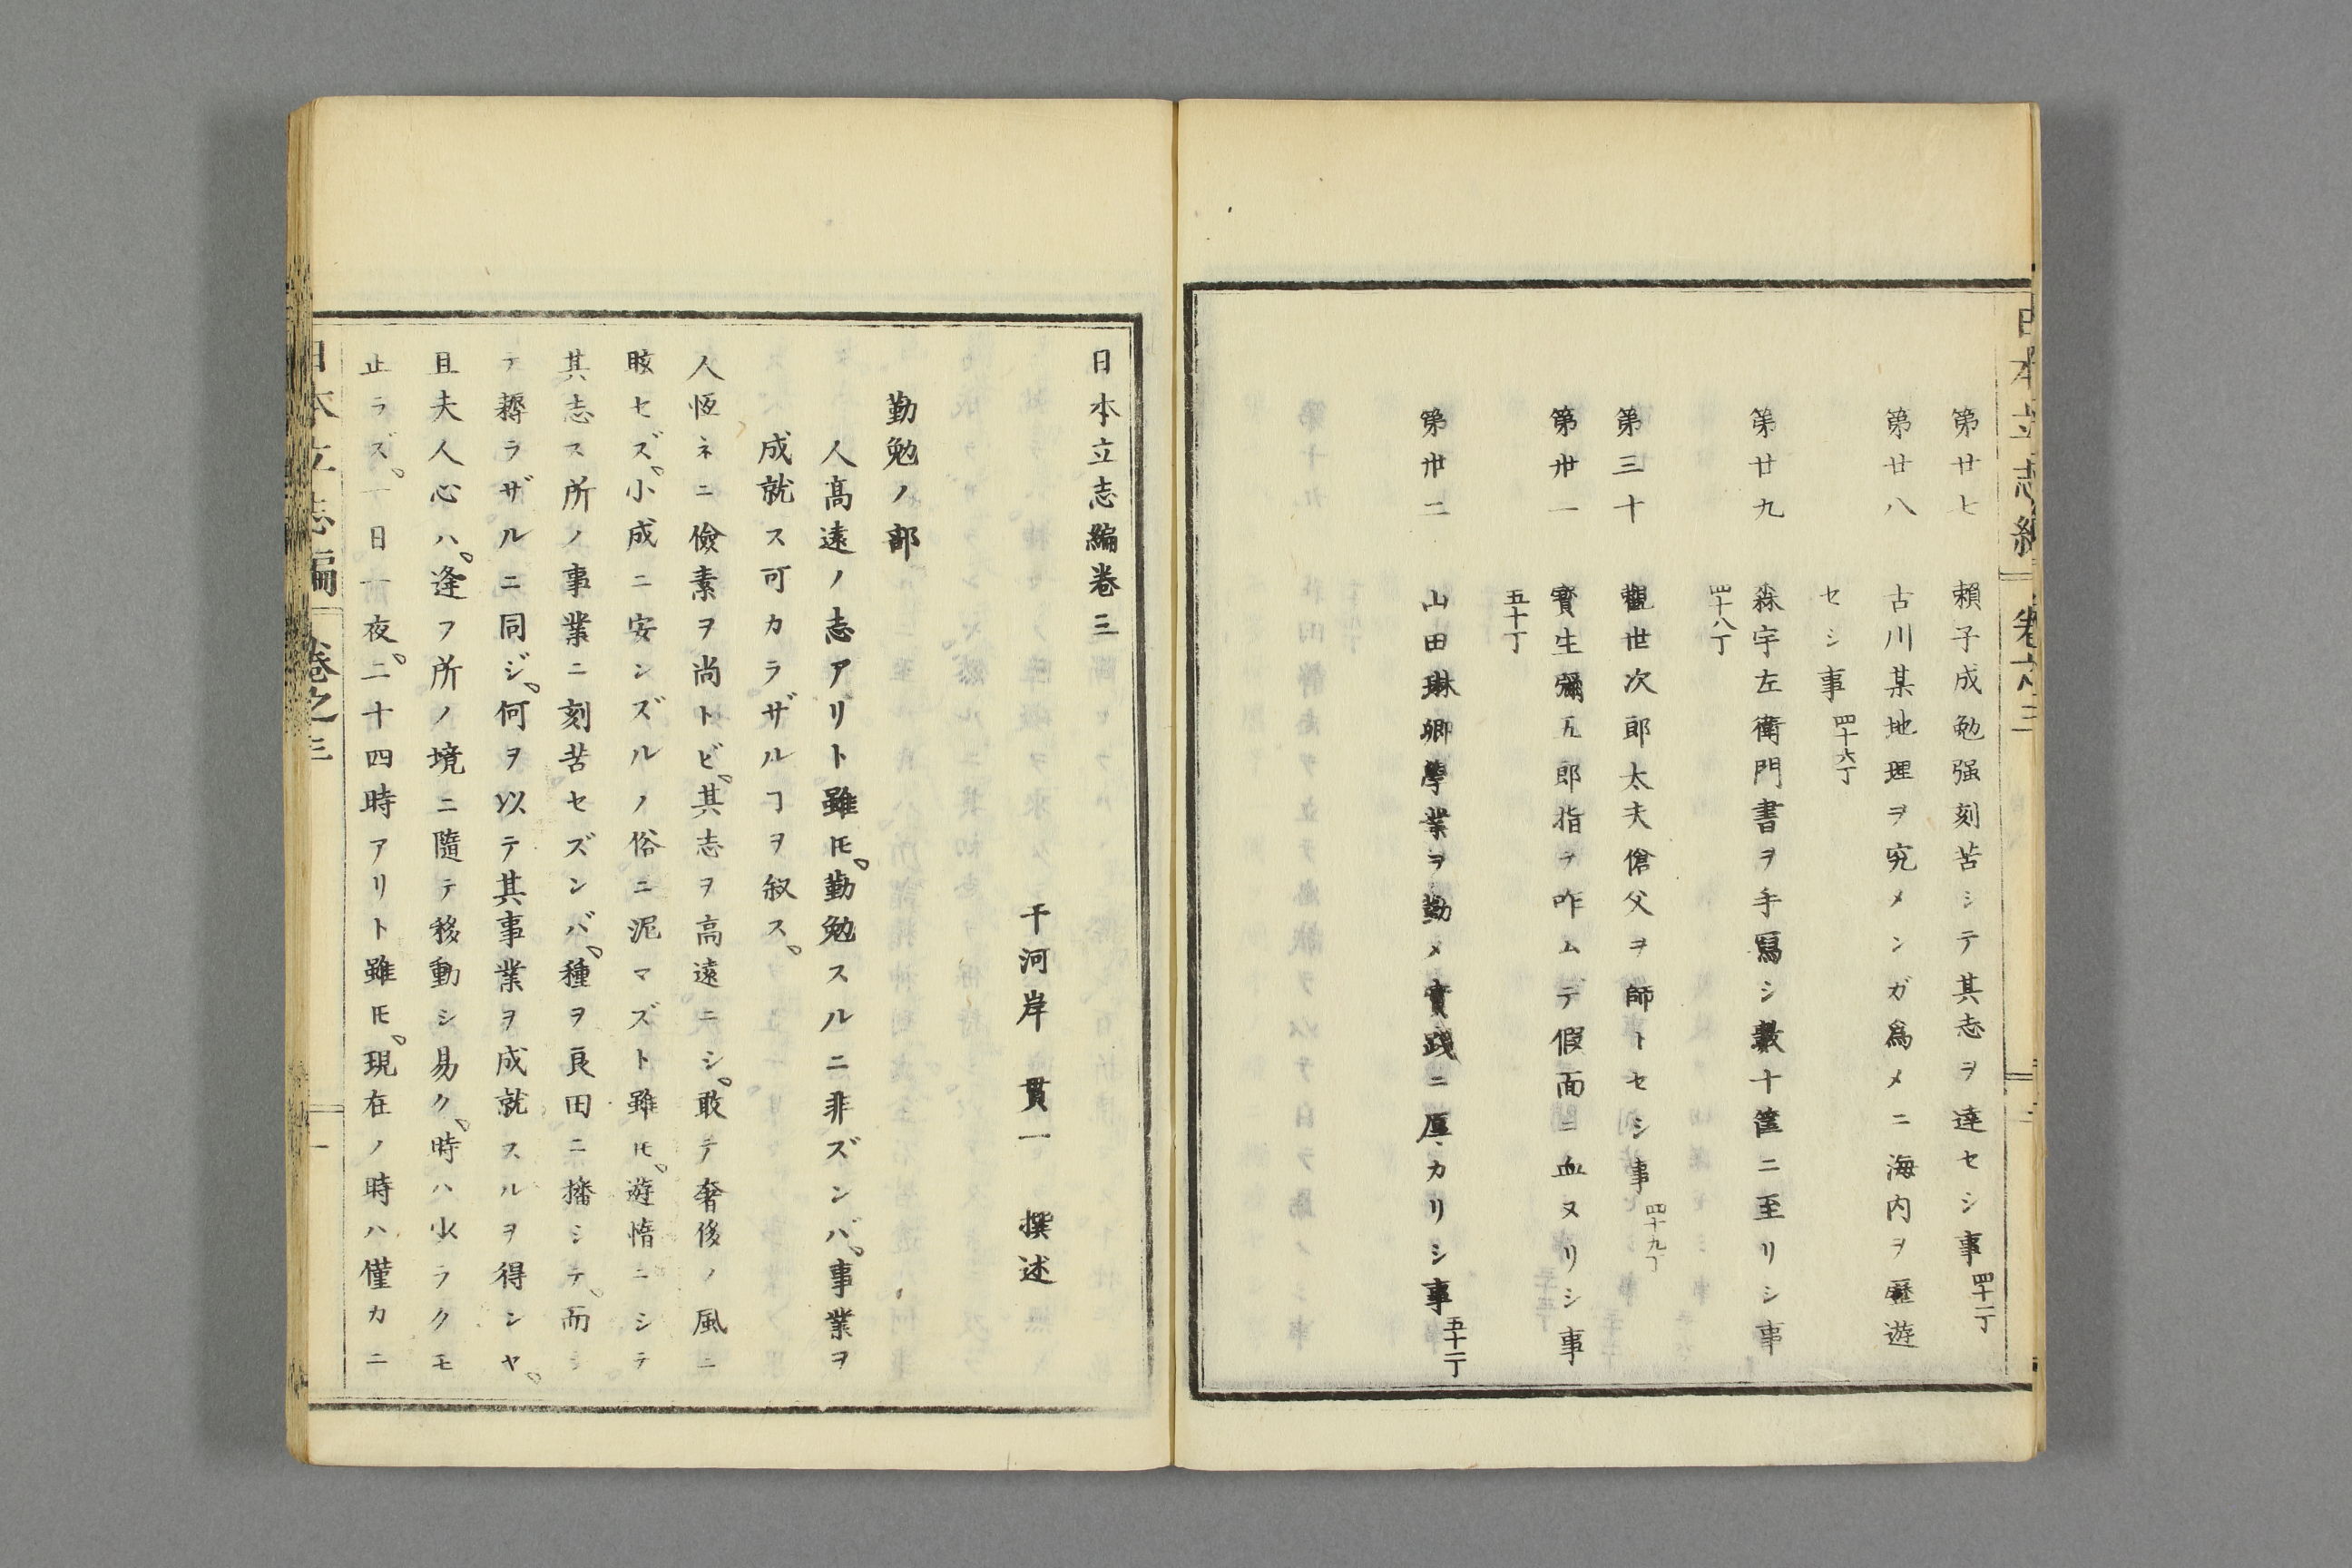 第廿七　賴子成勉强刻苦シテ其志ヲ達セシ事 四十二丁
第廿八　古川某地理ヲ究メンガ爲メニ海内ヲ歷遊
セシ事 四十六丁
第廿九　森宇左衛門書ヲ手寫シ數十筐ニ至リシ事
四十八丁
第三十　觀世次郎太夫傖父ヲ師トセシ事 四十九丁
第卅一　寳生彌五郎指ヲ咋ムデ假面ニ血ヌリシ事
五十丁
第卅二　山田琳卿學業ヲ勤メ實踐ニ厚カリシ事 五十一丁
日本立志編卷三
干河岸　貫一　撰述
勤勉ノ部
人髙遠ノ志アリト雖𪜈。勤勉スルニ非ズンバ。事業ヲ
成就ス可カラザルヿヲ叙ス。
人恆ネニ儉素ヲ尚トビ。其志ヲ高遠ニシ。敢テ奢侈ノ風ニ
眩セズ。小成ニ安ンズルノ俗ニ泥マズト雖𪜈。遊惰ニシテ
其志ス所ノ事業ニ刻苦セズンバ。種ヲ良田ニ播シテ。而シ
テ耨ラザルニ同ジ。何ヲ以テ其事業ヲ成就スルヲ得ンヤ。
且夫人心ハ。逢フ所ノ境ニ隨テ移動シ易ク。時ハ水ラクモ
止ラズ。一日一夜。二十四時アリト雖𪜈。現在ノ時ハ僅カニ
日本立志編　卷之三　一